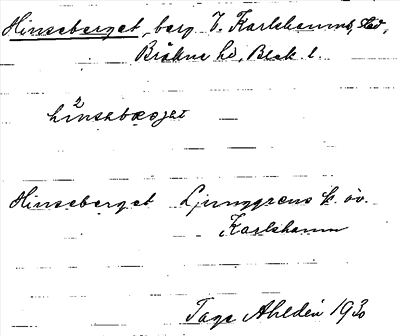 Hinseberget, berg V. Karlshamns stad,
Bräkne hd, Blek. l.
hinsabærjet
2
Hinseberget Ljunggrens k. öv.
Karlshamn
Tage Ahldén 1930